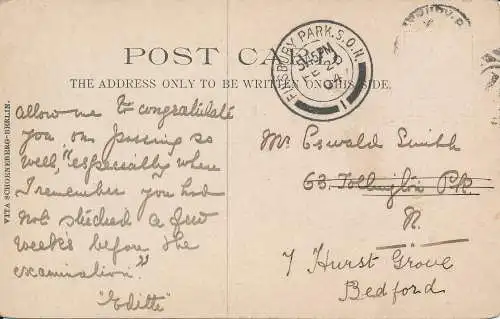 POST CARD.
THE ADDRESS ONLY TO BE WRITTEN ON THIS SIDE.
FINSBURY PARK.S.O.N.
5.15PM
04
1
VITA SCHOENEBERG-BERLIN.
allow me to congratulate
you on passing so
well, "especially when
I remember you had
not studied a few
weeks before the
examination"
"Editte"
Mr Oswald Smith
63. Tollington Pk
N.
7 Hurst Grove
Bedford